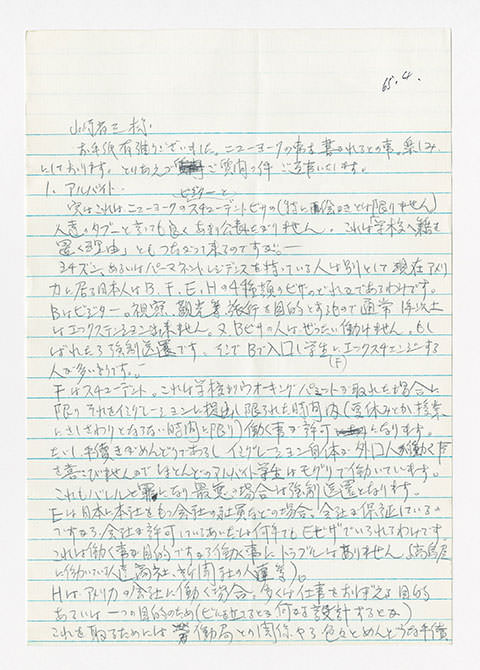 65.4.
山崎省三様.
お手紙有難うございました。ニューヨークの事を書かれるとの事、楽しみ
にしております。とりあえずご質問の件ご返書いたします。
1. アルバイト.
ビジターと
実はこれはニューヨークのスチューデントビザの(特に画会きとは限りません)
人達のタブーと云っても良くあまり公表されておりません. これは学校へ籍を
置く理由」ともつながって来るのですが。—
シチズン、あるいはパーマネントレジデンスを持っている人は別として現在アメリ
カに居る日本人はB.F.E.Hの4種類のビザのどれかであるわけです。
Bはビジター。視察、観光等旅行を目的とするもので通常1年以上
はエクステンション出来ません。又Bビザの人はぜったい働けません。もし
ばれたら強制送還です。そこでBで入口し学生にエックスチェンジする
(F)
人が多いようです。—
Fはスチューデント。これは学校からウオーキングパミットが取れた場合に
限り それをイミグレーションに提出し限られた時間内(夏休みとか授業
にさしさわりとならない時間に限り)働く事が許可になります。
たいし手続きがめんどうであるしイミグレーション自体が外口人が働く事
を喜こびませんのでほとんどのアルバイト学生はモグリで働いています。
これもバレルと罪になり最悪の場合は強制送還となります。
Eは日本に本社をもつ会社の社員などの場合、会社が保証しているの
ですから会社が許可しているあいだは何年でもEビザでいられるわけです。
これは働く事が目的ですから働く事にトラブルはありません(高島屋
に働いている人達商社、新聞社の人達等)。
Hはアメリカの会社に働く場合、多くは仕事をおぼえる目的
あるいは一つの目的のため(ビルを立てるとか何かを設計するとか)
これを取るためには労働局との関係やら色々とめんどうな手続